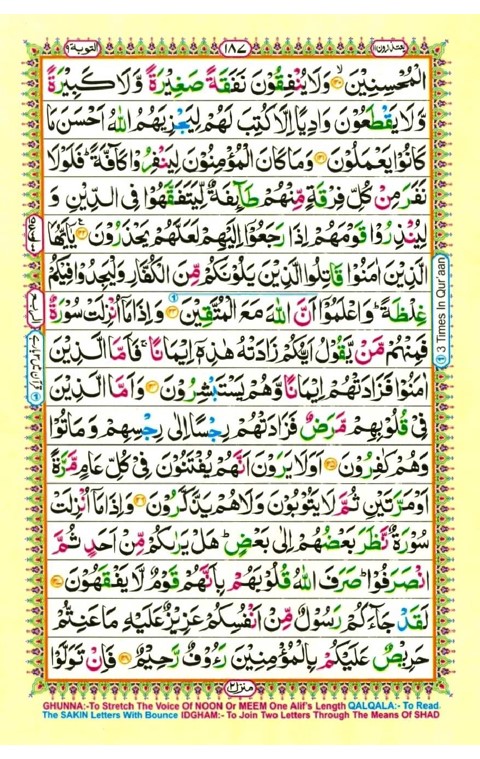 التوبة ٩
١٨٧
يعتذرون ١١
الْمُحْسِنِيْنَ ۙ﴿۱۲۰﴾ وَلَا يُنْفِقُوْنَ نَفَقَةً صَغِيْرَةً وَّلَا كَبِيْرَةً
وَّلَا يَقْطَعُوْنَ وَادِيًا اِلَّا كُتِبَ لَهُمْ لِيَجْزِيَهُمُ اللّٰهُ اَحْسَنَ مَا
كَانُوْا يَعْمَلُوْنَ ﴿۱۲۱﴾ وَمَا كَانَ الْمُؤْمِنُوْنَ لِيَنْفِرُوْا كَآفَّةً ؕ فَلَوْلَا
نَفَرَ مِنْ كُلِّ فِرْقَةٍ مِّنْهُمْ طَآئِفَةٌ لِّيَتَفَقَّهُوْا فِى الدِّيْنِ وَ
لِيُنْذِرُوْا قَوْمَهُمْ اِذَا رَجَعُوْۤا اِلَيْهِمْ لَعَلَّهُمْ يَحْذَرُوْنَ ﴿۱۲۲﴾ يٰۤاَيُّهَا
الَّذِيْنَ اٰمَنُوْا قَاتِلُوا الَّذِيْنَ يَلُوْنَكُمْ مِّنَ الْكُفَّارِ وَلْيَجِدُوْا فِيْكُمْ
غِلْظَةً ؕ وَاعْلَمُوْۤا اَنَّ اللّٰهَ مَعَ الْمُتَّقِيْنَ ﴿۱۲۳﴾ وَاِذَا مَاۤ اُنْزِلَتْ سُوْرَةٌ
فَمِنْهُمْ مَّنْ يَّقُوْلُ اَيُّكُمْ زَادَتْهُ هٰذِهٖۤ اِيْمَانًا ۚ فَاَمَّا الَّذِيْنَ
اٰمَنُوْا فَزَادَتْهُمْ اِيْمَانًا وَّهُمْ يَسْتَبْشِرُوْنَ ﴿۱۲۴﴾ وَاَمَّا الَّذِيْنَ
فِىْ قُلُوْبِهِمْ مَّرَضٌ فَزَادَتْهُمْ رِجْسًا اِلٰى رِجْسِهِمْ وَمَاتُوْا
وَهُمْ كٰفِرُوْنَ ﴿۱۲۵﴾ اَوَلَا يَرَوْنَ اَنَّهُمْ يُفْتَنُوْنَ فِىْ كُلِّ عَامٍ مَّرَّةً
اَوْ مَرَّتَيْنِ ثُمَّ لَا يَتُوْبُوْنَ وَلَا هُمْ يَذَّكَّرُوْنَ ﴿۱۲۶﴾ وَاِذَا مَاۤ اُنْزِلَتْ
سُوْرَةٌ نَّظَرَ بَعْضُهُمْ اِلٰى بَعْضٍ ؕ هَلْ يَرٰىكُمْ مِّنْ اَحَدٍ ثُمَّ
انْصَرَفُوْا ؕ صَرَفَ اللّٰهُ قُلُوْبَهُمْ بِاَنَّهُمْ قَوْمٌ لَّا يَفْقَهُوْنَ ﴿۱۲۷﴾
لَقَدْ جَآءَكُمْ رَسُوْلٌ مِّنْ اَنْفُسِكُمْ عَزِيْزٌ عَلَيْهِ مَا عَنِتُّمْ
حَرِيْصٌ عَلَيْكُمْ بِالْمُؤْمِنِيْنَ رَءُوْفٌ رَّحِيْمٌ ﴿۱۲۸﴾ فَاِنْ تَوَلَّوْا
منزل ٢
① 3 Times In Qur'aan
GHUNNA:-To Stretch The Voice Of NOON Or MEEM One Alif's Length QALQALA:- To Read
The SAKIN Letters With Bounce IDGHAM:- To Join Two Letters Through The Means Of SHAD